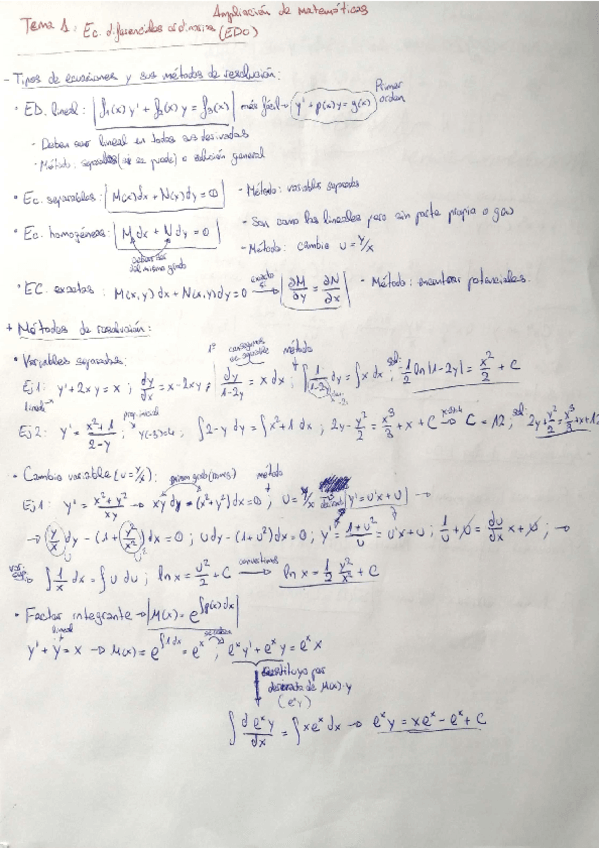 Ampliación de matemáticas
Tema 1: Ec. diferenciales ordinarias (EDO)
- Tipos de ecuaciones y sus métodos de resolución:
• ED. lineal: f₁(x) y' + f₂(x) y = f₃(x) más fácil → y' + p(x)y = g(x) Primer orden
- Deben ser lineal en todas sus derivadas
- Método: separables (si se puede) o solución general
• Ec. separables: M(x)dx + N(x)dy = 0 - Método: variables separadas
• Ec. homogéneas: M dx + N dy = 0 - Son como las lineales pero sin parte propia o g(x)
deben ser del mismo grado - Método: cambio u = y/x
• EC. exactas: M(x,y)dx + N(x,y)dy = 0 exacta → ∂M/∂y = ∂N/∂x - Método: encontrar potenciales.
+ Métodos de resolución:
• Variables separadas: 1º conseguimos ec separable método
Ej1: y' + 2xy = x ; dy/dx = x - 2xy ; dy/1-2y = x dx ; ∫ 1/1-2y dy = ∫ x dx ; sol: -1/2 ln|1-2y| = x²/2 + C
lineal
Ej2: y' = x²+1/2-y ; y(-3)=4 ; ∫ 2-y dy = ∫ x²+1 dx ; 2y - y²/2 = x³/3 + x + C → C = 12 ; sol: 2y + y²/2 = x³/3 + x + 12
• Cambio variable (u = y/x): mismo grado método
Ej1: y' = x²+y²/xy → xy dy - (x²+y²)dx = 0 ; u = y/x y' = u'x + u →
→ y/x dy - (1 + y²/x²)dx = 0 ; u dy - (1+u²)dx = 0 ; y' = 1+u²/u = u'x + u ; 1/u + u = du/dx x + u ; →
var. sep. ∫ 1/x dx = ∫ u du ; ln x = u²/2 + C convertimos → ln x = 1/2 y²/x² + C
• Factor integrante → M(x) = e^∫p(x)dx
lineal
y' + y = x → M(x) = e^∫1dx = e^x ; e^x y' + e^x y = e^x x
sustituyo por
derivada de M(x)·y
(e^x y)
∫ d e^x y/dx = ∫ x e^x dx → e^x y = x e^x - e^x + C